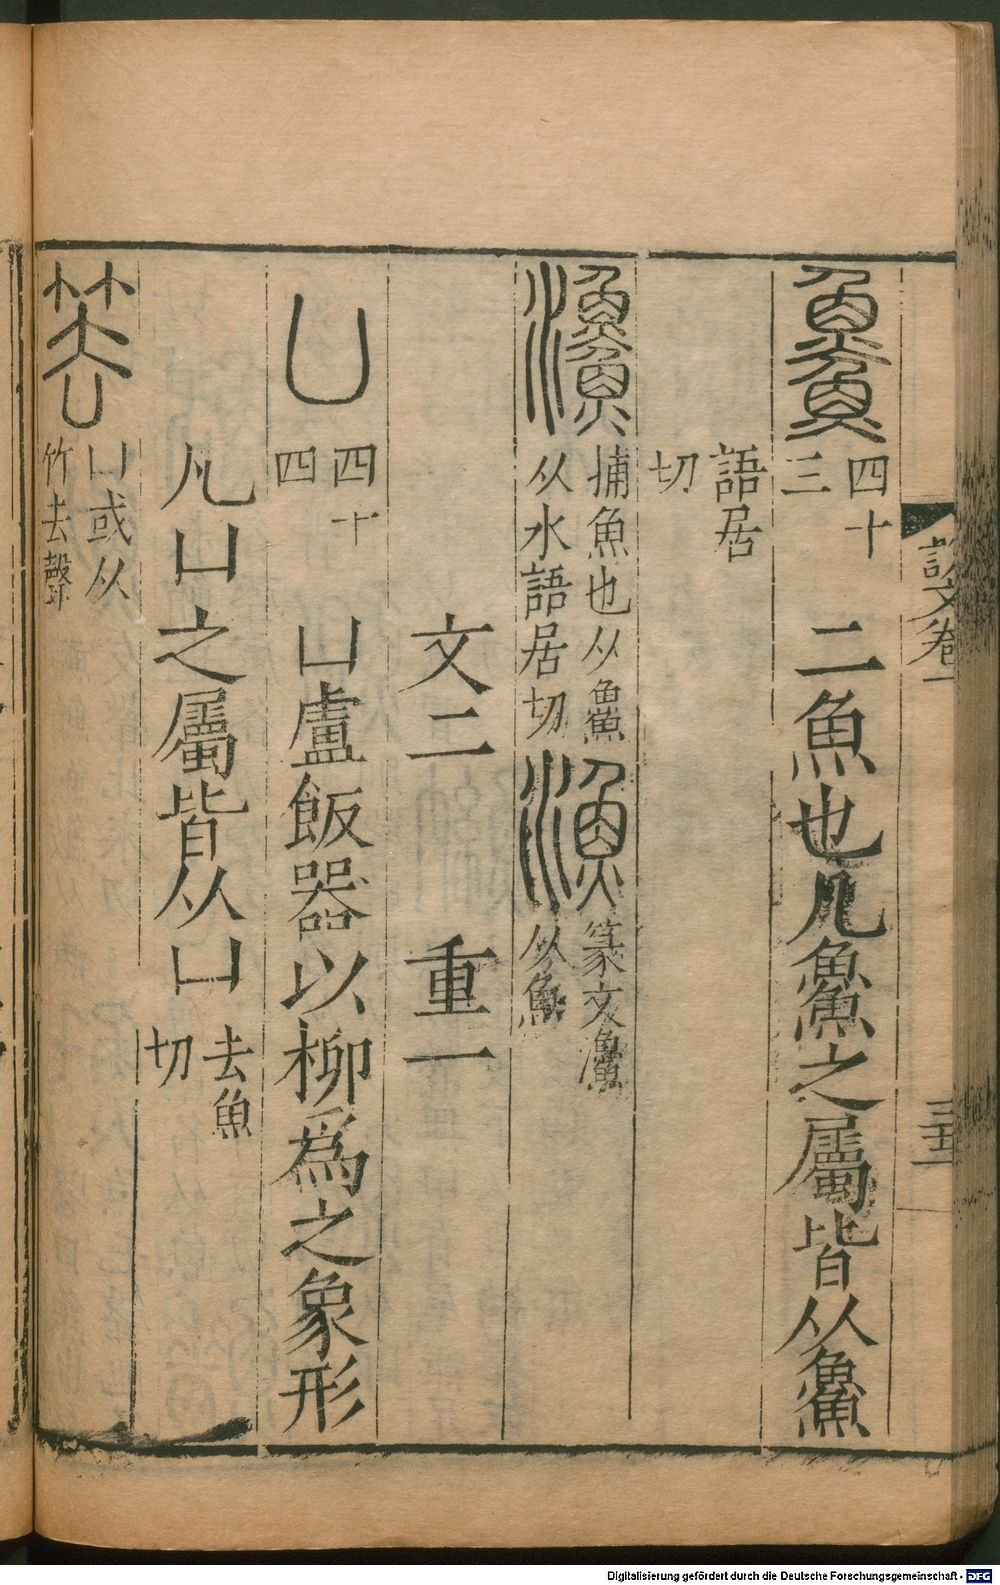 𩺰 四十三 二魚也凡𩺰之屬皆从𩺰
語居切
𤅣 捕魚也从𩺰从水語居切 漁 篆文𤅣从魚
文二 重一
凵 四十四 凵盧飯器以柳爲之象形
凡凵之屬皆从凵 去魚切
𥬔 凵或从竹去聲
說文卷一
三十一
Digitalisierung gefördert durch die Deutsche Forschungsgemeinschaft - DFG